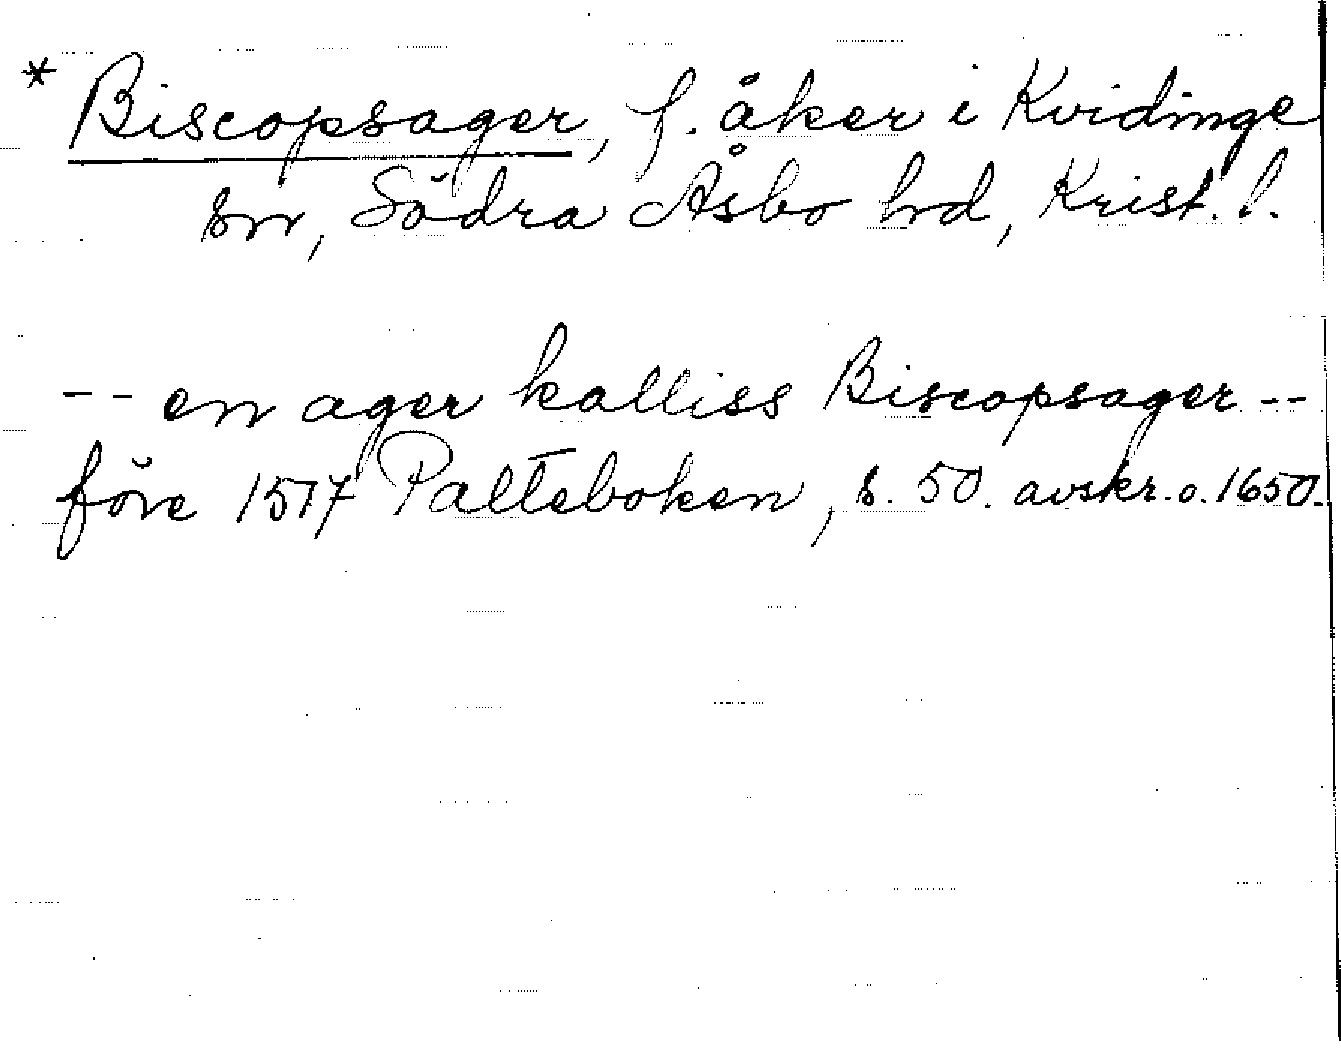 * Biscopsager, f. åker i Kvidinge
sn, Södra Åsbo hd, Krist. l.
-- en ager kalliss Biscopsager --
före 1517 Palteboken, s. 50. avskr. o. 1650.